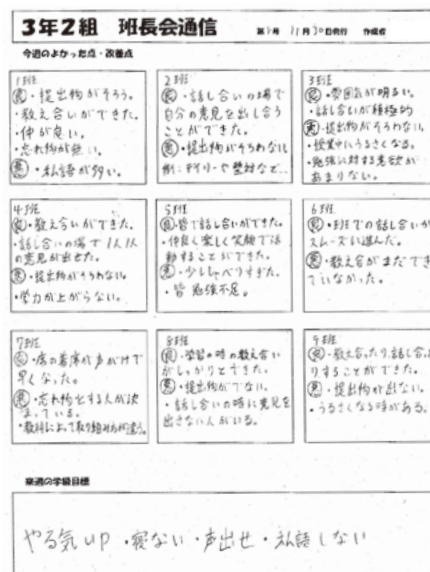 3年2組 班長会通信 11月30日発行 作成者
今週のよかった点・改善点
1班
良・提出物がそろう。
・教え合いができた。
・仲が良い。
・忘れ物が無い。
悪・私語が多い。
2班
良・話し合いの場で
自分の意見を出し合う
ことができた。
悪・提出物がそろわない
3班
良・雰囲気が明るい。
・話し合いが積極的
悪・提出物がそろわない。
・授業中にうるさくなる。
・勉強に対する意欲が
あまりない。
4班
良・教え合いができた。
・話し合いの場で1人1人
の意見が出せた。
悪・提出物がそろわない。
・学力が上がらない。
5班
良・皆で話し合いができた。
・仲良く楽しく笑顔で活
動することができた。
悪・少ししゃべりすぎた。
・皆勉強不足。
6班
良・班での話し合いが
スムーズに進んだ。
悪・教え合いがまだでき
ていなかった。
7班
良・席の着席が声がけで
早くなった。
悪・忘れ物をする人が決
まっている。
・教科によって取り組み方が違う。
8班
良・学習の時の教え合い
がしっかりとできた。
悪・提出物がでない。
・話し合いの時に意見を
出さない人がいる。
9班
良・教え合ったり、話し合った
りすることができた。
悪・提出物が出ない。
・うるさくなる時がある。
来週の学級目標
やる気UP・寝ない・声出せ・私語しない